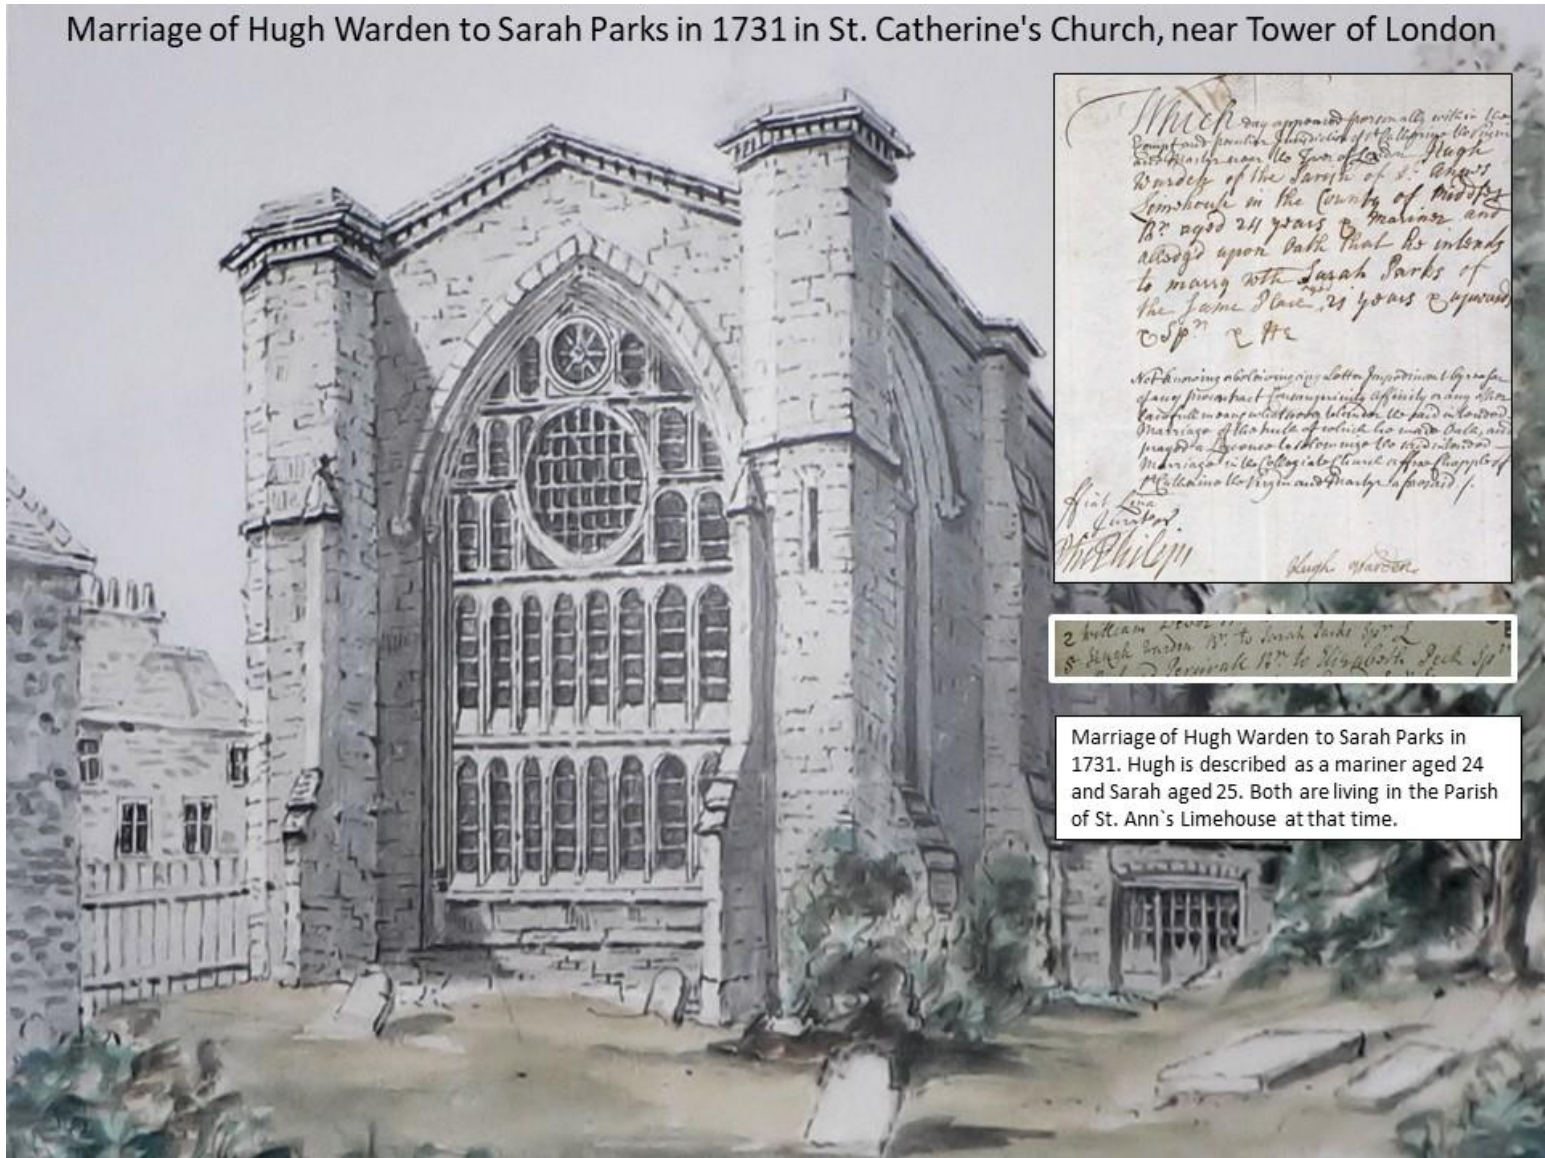 Marriage of Hugh Warden to Sarah Parks in 1731 in St. Catherine's Church, near Tower of London
Which day appeared personally within the
Exempt and peculiar Jurisdiction of St Catherine the Virgin
and Martyr near the Tower of London Hugh
Warden of the Parish of St. Anns
Limehouse in the County of Middx
Br. aged 24 years & mariner and
alledgd upon Oath that he intends
to marry with Sarah Parks of
the Same Place 
years & upward
& Spr
Not knowing or believing any
Impediment by reason
of any
Consanguinity Affinity or any other
Lawfull means whatsoever to hinder the said intended
Marriage of the truth of which he made Oath, and
prayed a Licence to solemnize the said intended
Marriage in the Collegiate Church or
of
St Catherine the Virgin and Martyr aforesaid
fiat
Hugh Warden
2 William
5 Hugh Warden Br. to Sarah Parks Spr
to Elizabeth
Spr
Marriage of Hugh Warden to Sarah Parks in
1731. Hugh is described as a mariner aged 24
and Sarah aged 25. Both are living in the Parish
of St. Ann`s Limehouse at that time.